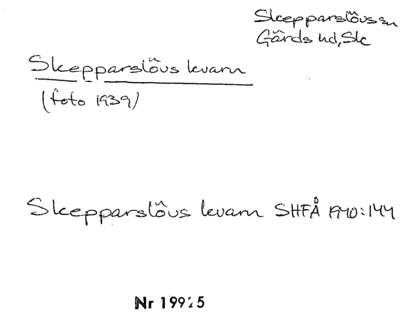 Skepparslövs sn
Gärds hd, Sk
Skepparslövs kvarn
(foto 1939)
Skepparslövs kvarn SHFÅ 1940:144
Nr 19925